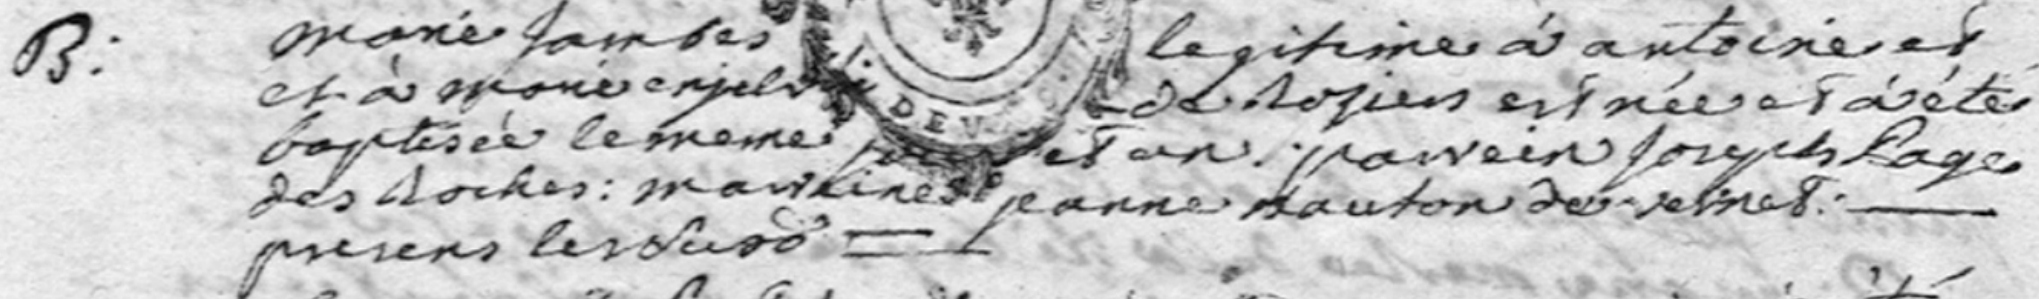 B: marie jambes legitime à antoine et
et à marie enjelvi de Rosiers est née et à été
baptisée le meme jour et an. parrein joseph Page
des Roches: marreine jeanne mauton de vernet:
presens les susd
DEV